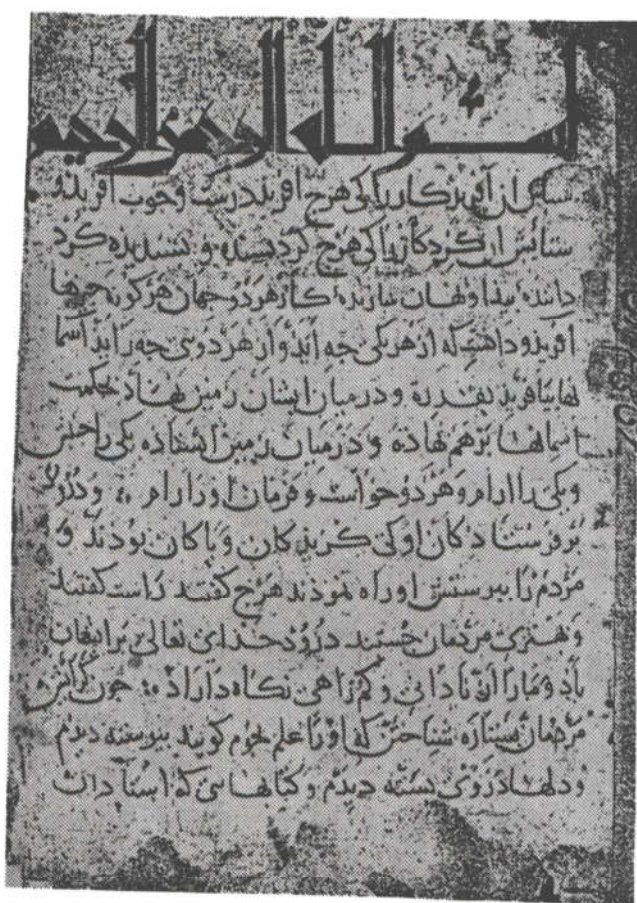 بسم الله الرحمن الرحیم
سباس ان افریدکار را کی هرج افرید درست و خوب افرید و
ستایش ان کردکار را کی هرج کرد بسندیده کرد
داننده بیدا و نهان سازنده کار هر دو جهان هر کونه جیزها
افرید و دانست که از هر یکی جه اید و از هر دوی جه زاید اسما
نها بیافرید بقدرة و در میان ایشان زمین نهاد بحکمت
اسمانها برهم نهاده و در میان زمین استاده یکی را جنبش
و یکی را ارام و هر دو خواست و فرمان او را رام و درود
بر فرستادکان او کی کزیدکان و باکان بودند و
مردم را ببرستش او راه نمودند هرج کفتند راست کفتند
و مردمان جستند درود خدای تعالی بر ایشان
باذ و ما را از نادانی و کم راهی نکاه داراد جون
مردمان بستاره شناختن کی او را علم نجوم کویند بیوسته دیدم
و دلها در وی بسته دیدم و کتابهایی که استادان